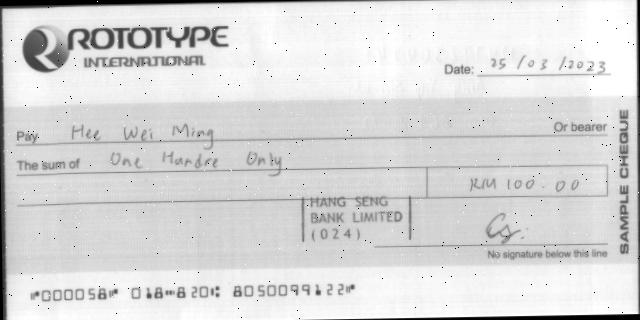 ROTOTYPE
INTERNATIONAL
Date: 25/03/2023
Pay Hee Wei Ming Or bearer
The sum of One Hundre Only
RM 100.00
HANG SENG
BANK LIMITED
(024)
No signature below this line
SAMPLE CHEQUE
⑈000058⑈ 018⑉820⑆ 8050099122⑈